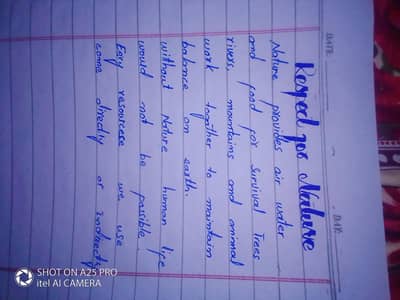 DATE:
DATE:
Respect for Nature
Nature provides air water
and food for survival Trees
rivers, mountains and animal
work together to maintain
balance on earth.
without Nature human life
would not be possible
Eery resourcese we use
come directly or indirectly
SHOT ON A25 PRO
itel AI CAMERA